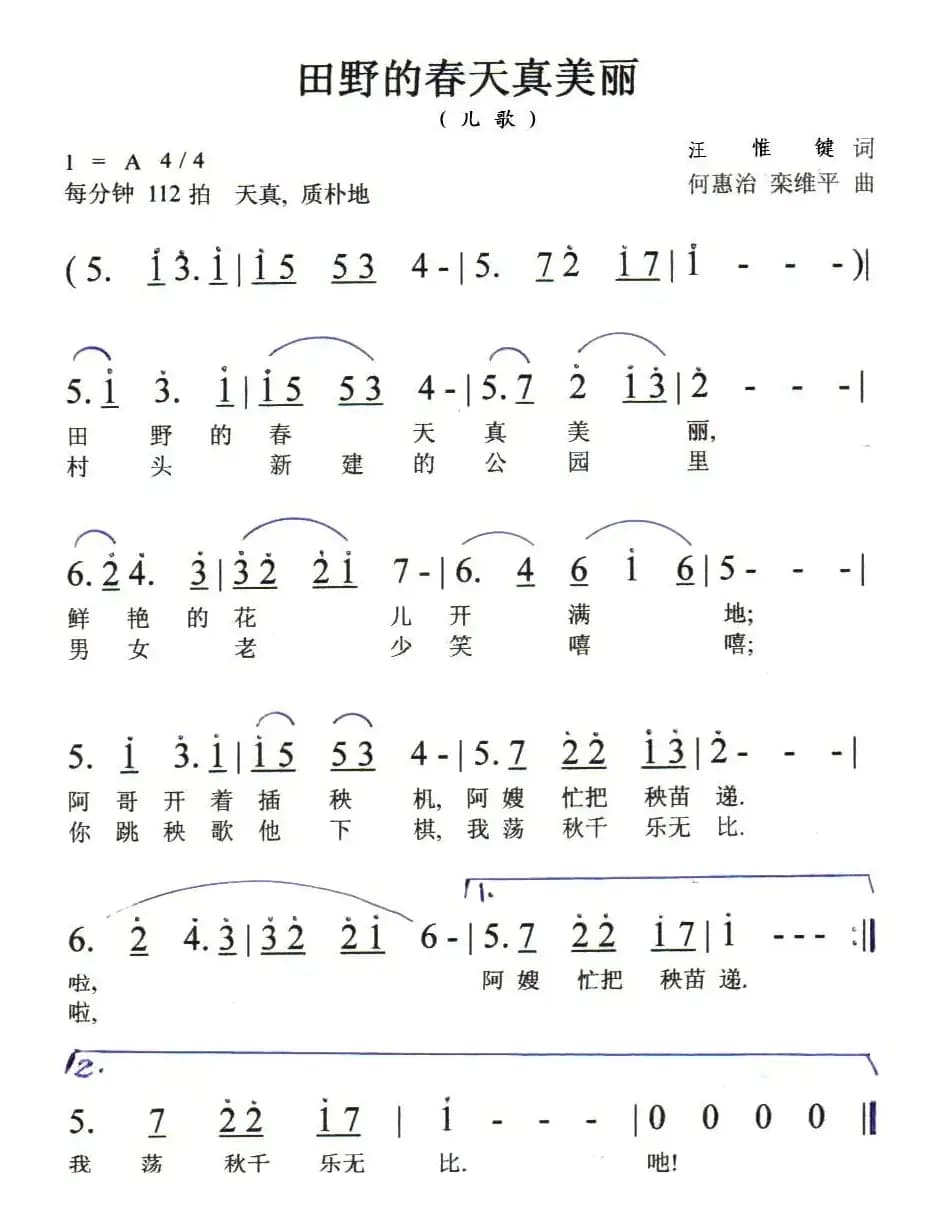 田野的春天真美丽
(儿歌)
1 = A 4/4
汪惟键 词
每分钟 112 拍 天真, 质朴地
何惠治 栾维平 曲
(5. i 3. i | i 5 5 3 4 - | 5. 7 2 i 7 | i - - - )|
5. i 3. i | i 5 5 3 4 - | 5. 7 2 i 3 | 2 - - - |
田野的春天真美丽,
村头新建的公园里
6. 2 4. 3 | 3 2 2 i 7 - | 6. 4 6 i 6 | 5 - - - |
鲜艳的花儿开满地;
男女老少笑嘻嘻;
5. i 3. i | i 5 5 3 4 - | 5. 7 2 2 i 3 | 2 - - - |
阿哥开着插秧机, 阿嫂忙把秧苗递.
你跳秧歌他下棋, 我荡秋千乐无比.
1.
6. 2 4. 3 | 3 2 2 i 6 - | 5. 7 2 2 i 7 | i - - - :‖
啦, 阿嫂忙把秧苗递.
啦,
2.
5. 7 2 2 i 7 | i - - - | 0 0 0 0 ‖
我荡秋千乐无比. 吔!